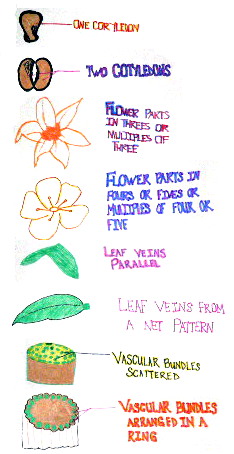 ONE CORTYLEDON
TWO COTYLEDONS
FLOWER PARTS
IN THREES OR
MULTIPLES OF
THREE
FLOWER PARTS IN
FOURS OR FIVES OR
MULTIPLES OF FOUR OR
FIVE
LEAF VEINS
PARALLEL
LEAF VEINS FROM
A NET PATTERN
VASCULAR BUNDLES
SCATTERED
VASCULAR BUNDLES
ARRANGED IN A
RING